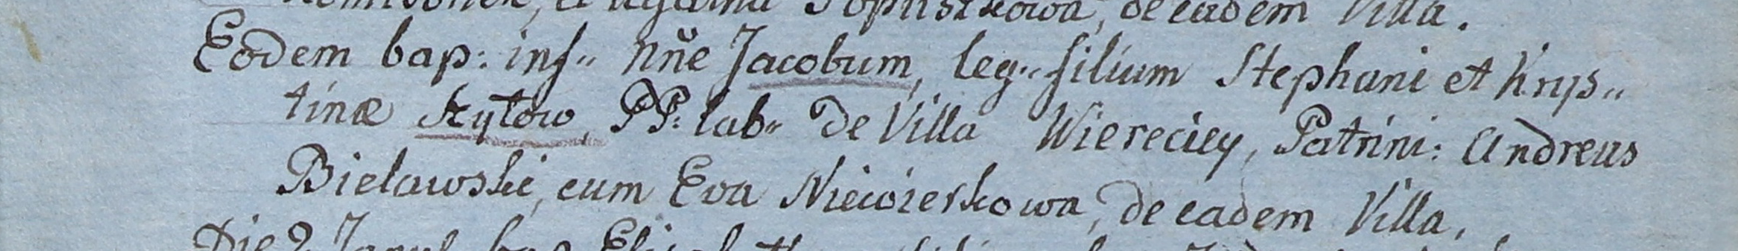 de eadem Villa.
Eodem bap: inf„ Nn̄e Jacobum, leg„ filium Stephani et Krys„
tinæ Szyłow, PP: lab„ de Villa Wiereciey, Patrini: Andreas
Bielawski, cum Eva Niewierkowa, de eadem Villa.
Die 2 Janu